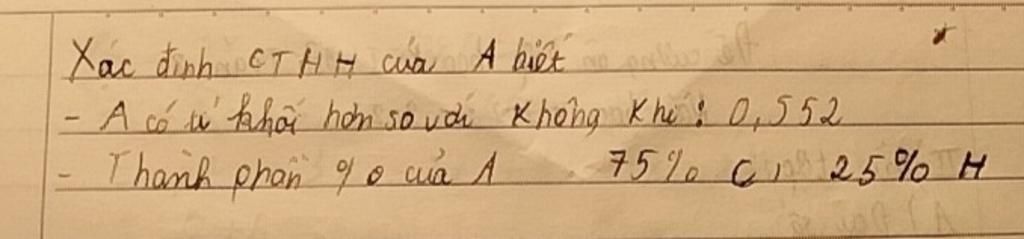 Xác định CTHH của A biết
- A có tỉ khối hơn so với không khí : 0,552
- Thành phần % của A 75% C, 25% H